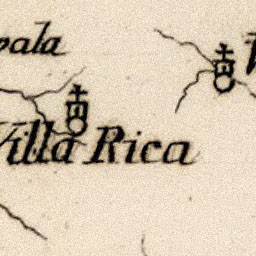 pala
Villa Rica